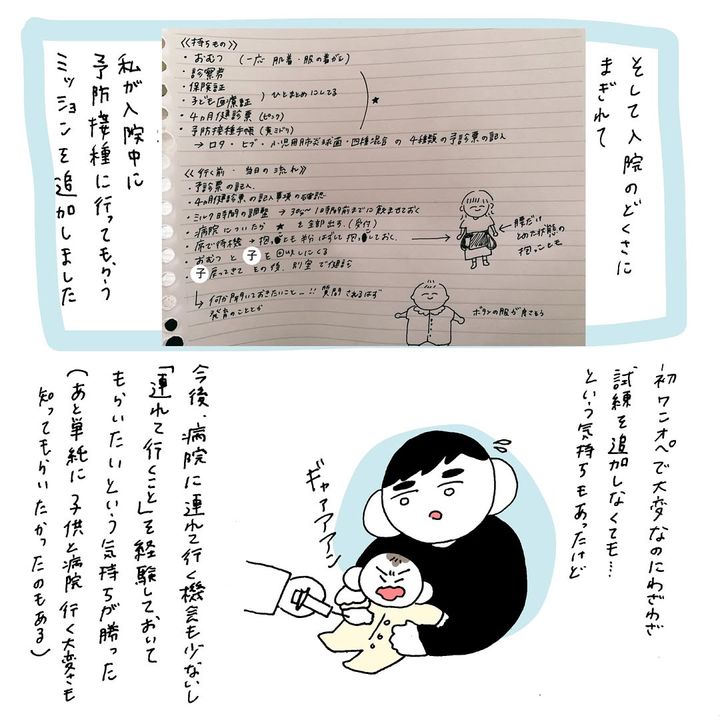 そして入院のどくさに
まぎれて
《持ちもの》
・おむつ（一応 肌着・服の着がえ）
・診察券
・保険証
・子ども医療証 ）ひとまとめにしてる
・4ヵ月健診票（ピンク）
★
・予防接種手帳（黄ミドリ）
→ロタ・ヒブ・小児用肺炎球菌・四種混合 の 4種類の予診票の記入
《行く前・当日の流れ》
・予診票の記入
・4ヵ月健診票の記入事項の確認
・ミルク時間の調整 → 30分〜1時間前までに飲ませておく
・病院についたら ★ を全部出す（受付）
・席で待機 → 抱っひも 外して 抱 しておく
・おむつ と 子 を
子 戻ってきて その後、別室で健診
→何か聞いておきたいこと…!! 質問されるはず
発育のこととか
腰だけ
とめた状態の
抱っこひも
ボタンの服が良さそう
私が入院中に
予防接種に行ってもらう
ミッションを追加しました
初ワンオペで大変なのにわざわざ
試練を追加しなくても…
という気持ちもあったけど
ギャァアアアン
今後、病院に連れて行く機会も少ないし
「連れて行くこと」を経験しておいて
もらいたいという気持ちが勝った
（あと単純に子供と病院行く大変さも
知ってもらいたかったのもある）